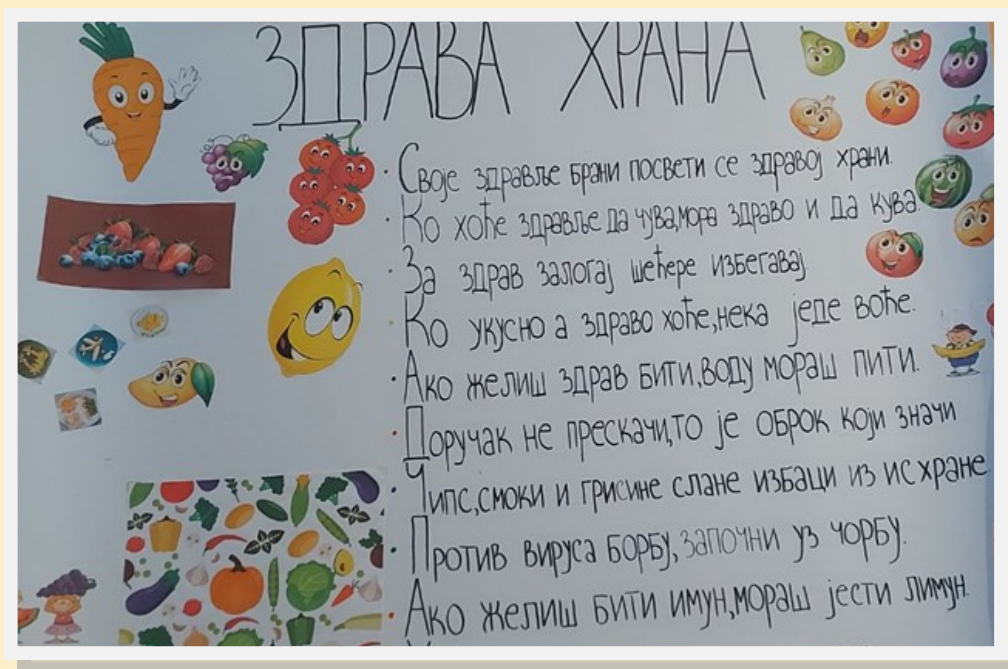 ЗДРАВА ХРАНА
· Своје здравље брани посвети се здравој храни.
· Ко хоће здравље да чува,мора здраво и да кува.
· За здрав залогај шећере избегавај.
· Ко укусно а здраво хоће,нека једе воће.
· Ако желиш здрав бити,воду мораш пити.
· Доручак не прескачи,то је оброк који значи
· Чипс,смоки и грисине слане избаци из исхране.
· Против вируса борбу,започни уз чорбу.
· Ако желиш бити имун,мораш јести лимун.